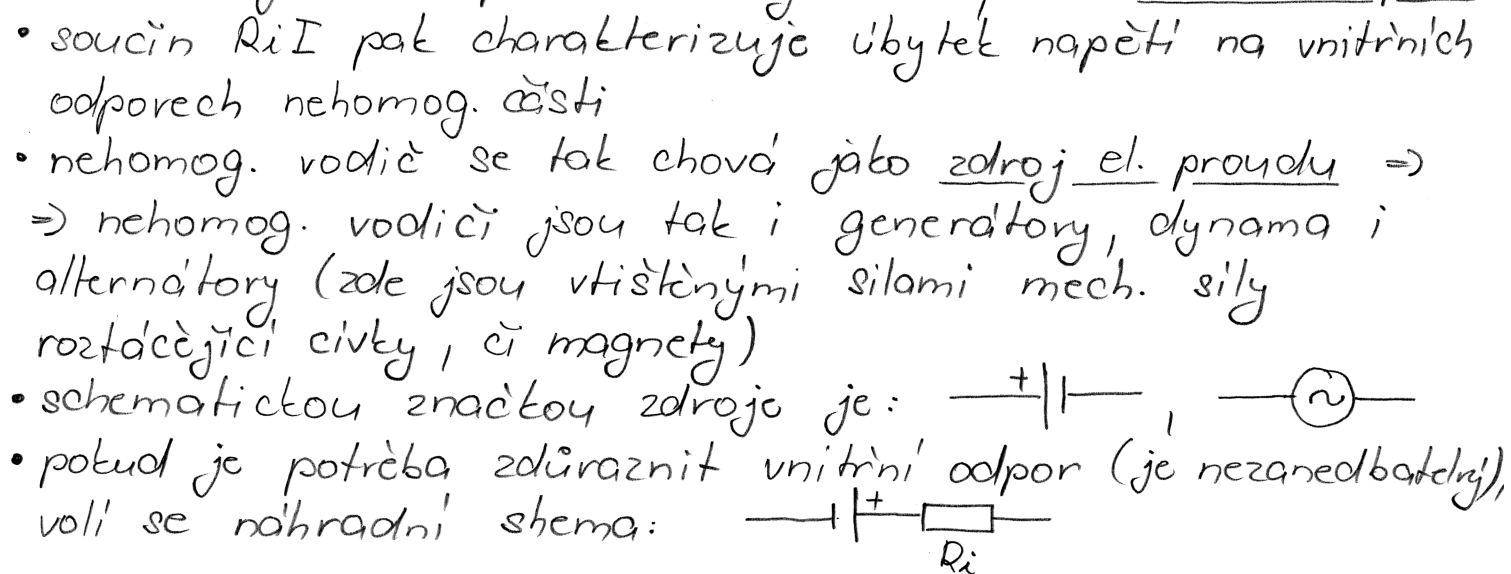 • součin RiI pak charakterizuje úbytek napětí na vnitřních
odporech nehomog. části
• nehomog. vodič se tak chová jako zdroj el. proudu =>
=> nehomog. vodiči jsou tak i generátory, dynama i
alternátory (zde jsou vtištěnými silami mech. síly
roztáčející cívky, či magnety)
• schematickou značkou zdroje je: + , ~
• pokud je potřeba zdůraznit vnitřní odpor (je nezanedbatelný),
volí se náhradní shema: +
Ri